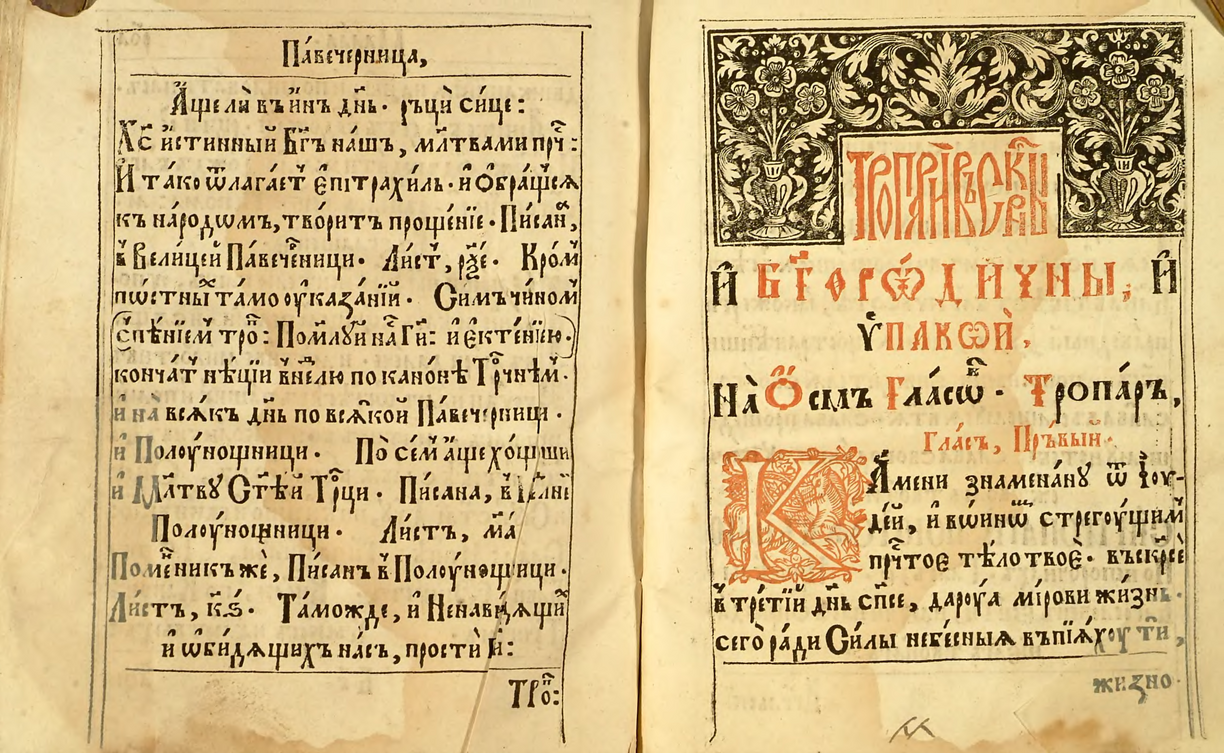 Па́вечерница,
А҆щели̇̀ въ и҆́нъ дн҃ь · рьци̇̀ си́це :
Хс҃ и҆́стинный Бг҃ъ на́шъ, мл҃твами прⷱ҇ :
И҆ та́ко ѿлага́етъ є҆пітрахи́ль · и҆ Ѻбра́щсѧ
къ наро́дѡмъ, тво́ритъ проще́нїе · Пи́сан,
в Вели́цей Па́вечеⷬ҇ници · Ли́ст, рѯ҃е · Кро́м
по́стныⷯ та́мо оу҆каза́нїй · Симъ чи́ном
с пѣ́нїем тро̑ⷫ : Поми́лꙋй на̑с Гⷭ҇и : и҆ є҆ктенїею ·
конча́т нѣ́цїи в не́лю по кано́нѣ Тро́чнѣм ·
и҆ на̀ всѧ́къ дн҃ь по всѧ́кой Па́вечерници ·
и҆ Полоу́нощници · По̀ се́м а҆́ще хо́щеши
и҆ Мл҃твꙋ Ст҃ѣ́й Трⷪ҇ци · Пи́сана, в Не́лне
Полоу́нощници · Ли́стъ, м҃а
Поме́никъ жѐ, Пи́санъ в Полоу́нощници ·
Ли́стъ, к҃ѕ · Та́можде, и҆ Ненави́дѧщиⷯ
и҆ ѡ҆би́дѧщихъ на́съ, прости̇̀ Гⷭ҇и :
Тро̑ⷫ :
ТРОПАРИ ВЪСКРⷭ҇НЫ
И҆ БГ҃ОРѠДИЧНЫ, И҆
ѵ҆ПАКѠЍ.
На̀ Ѻ҆смъ Гла́сѡвъ · Тропа́ръ,
гла́съ, Пръ́вый ·
Ка́мени знаменанꙋ ѿ І҆оу-
де́й, и҆ во́инѡⷨ стрегоу́щим
прⷱ҇тое тѣ́ло твоѐ · въскр҃се
в тре́тїй дн҃ь сп҃се, дароу́ѧ мі́рови жи́знь ·
сего̀ ра́ди Си́лы небе́сныѧ въпїѧ́хоу ти̇̀,
жизно ·